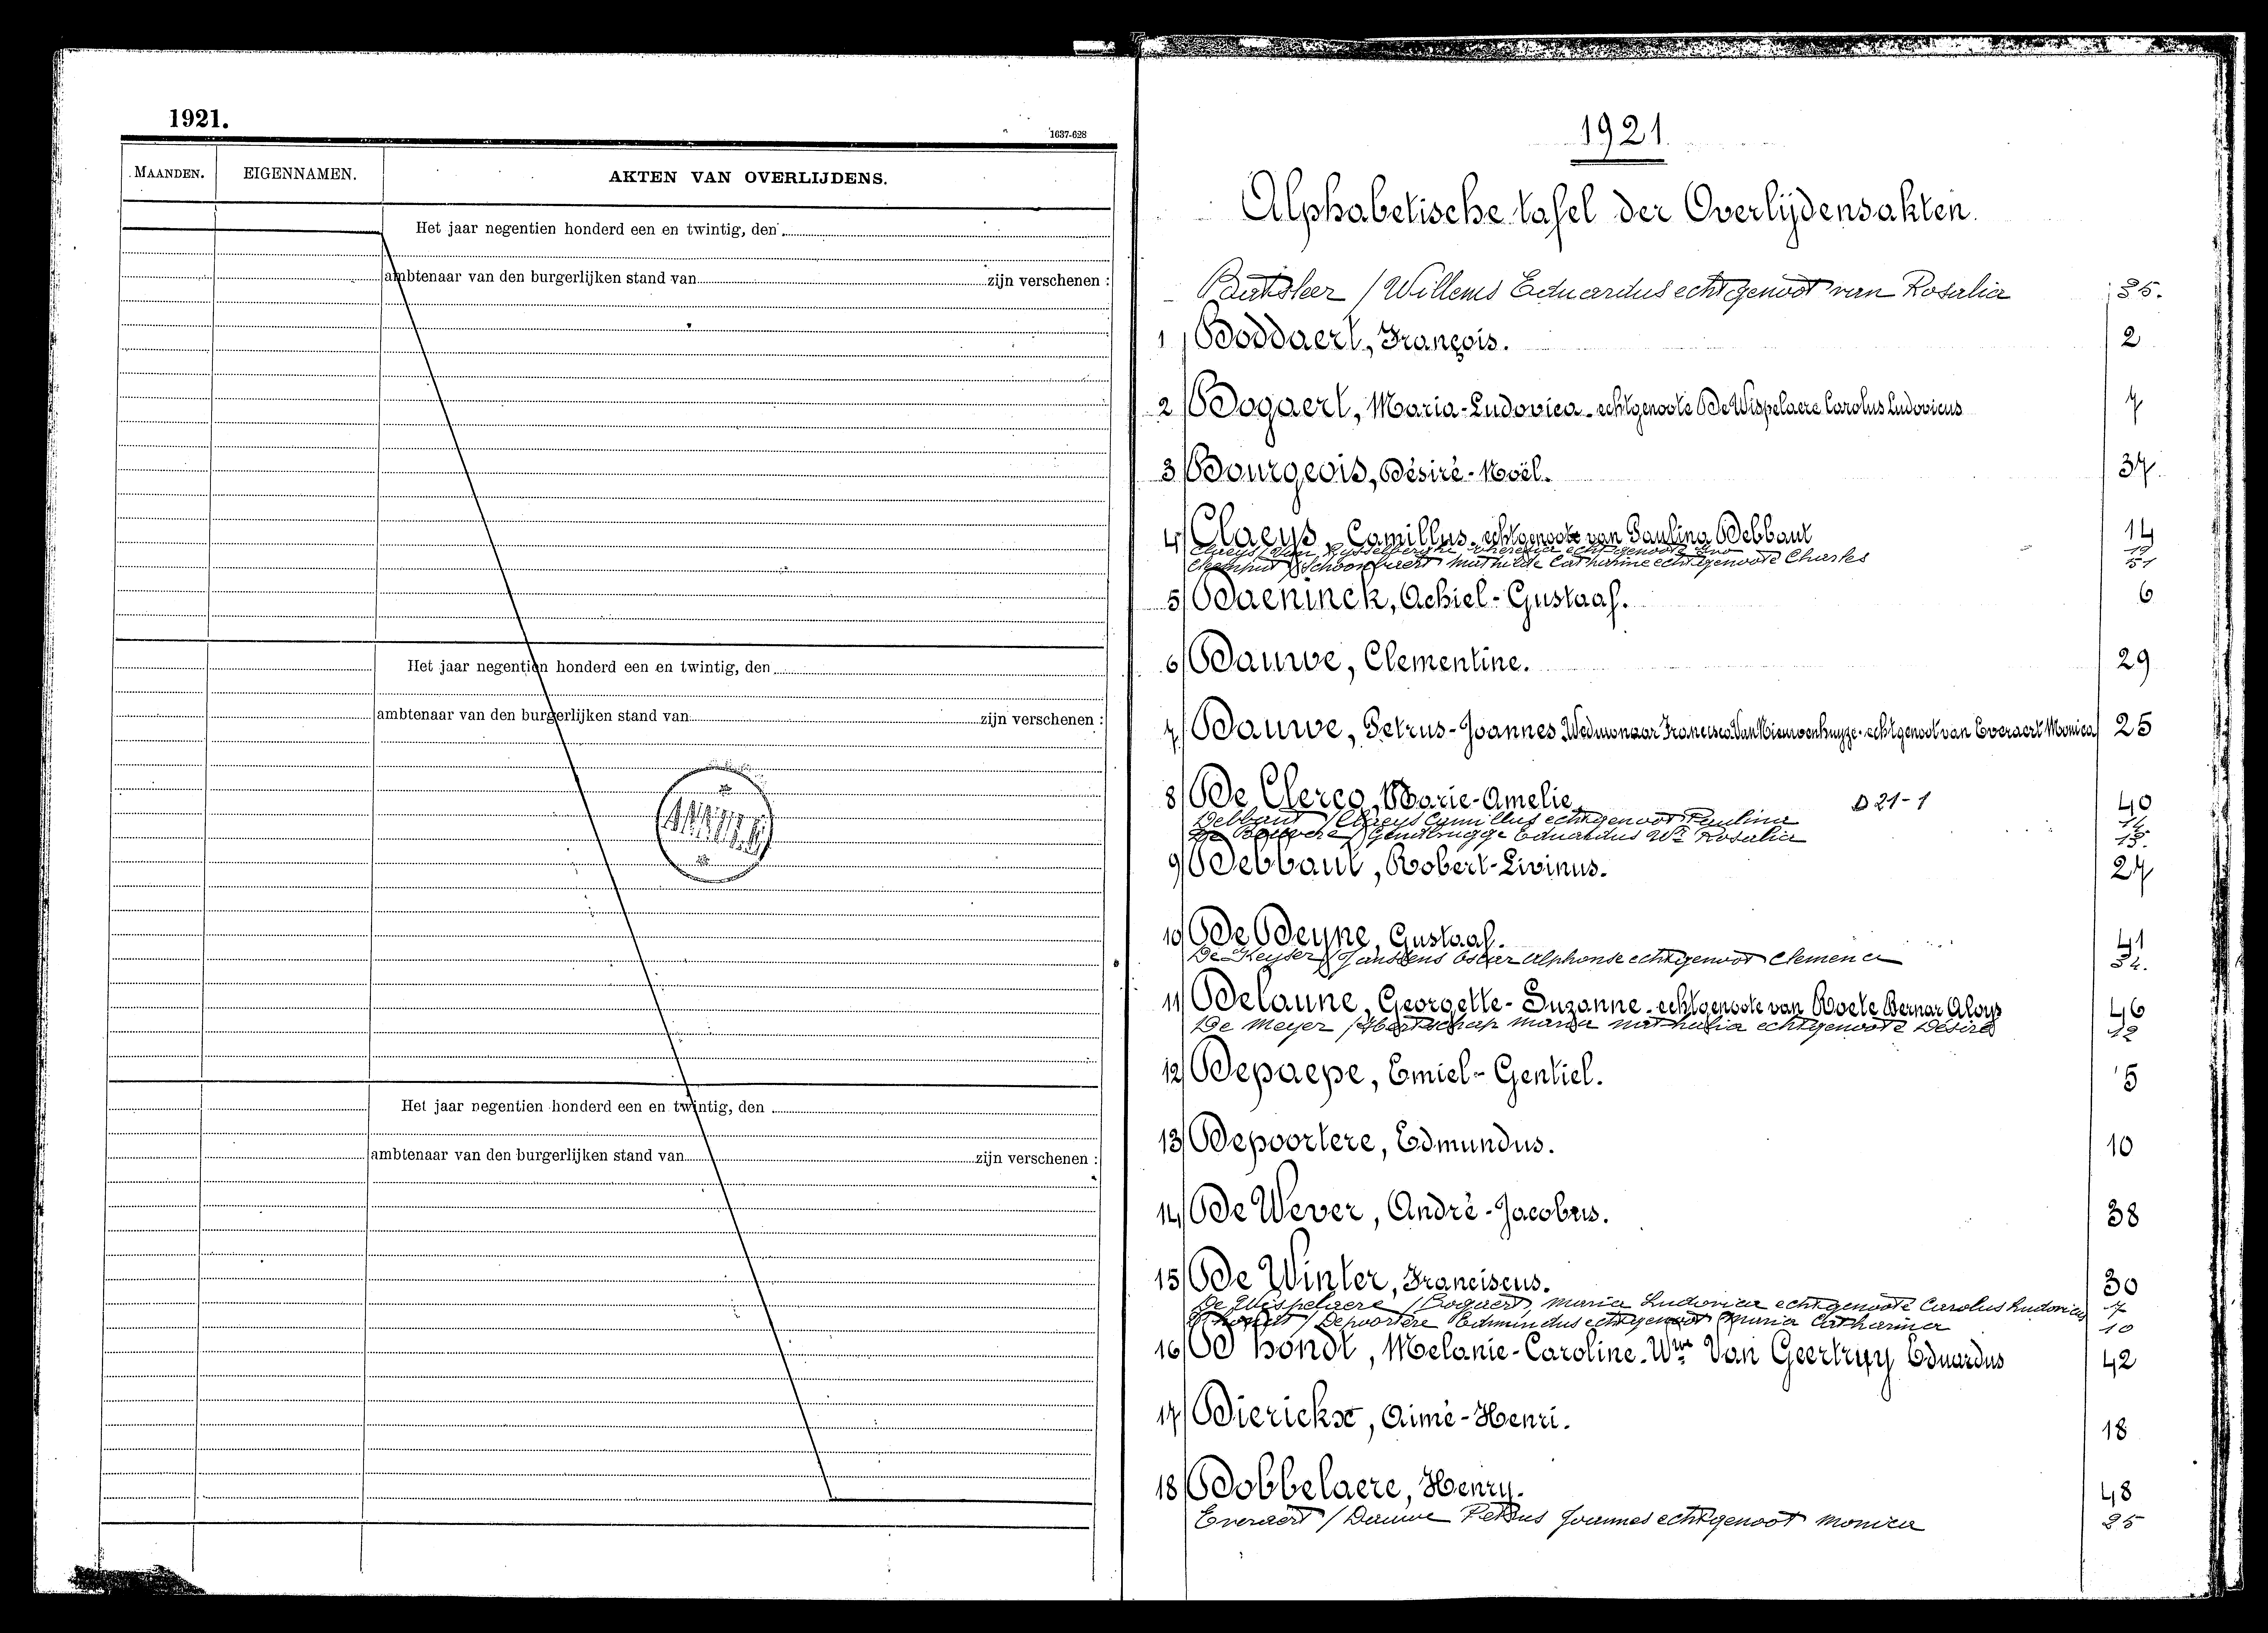 1921.
1637-628
MAANDEN.
EIGENNAMEN.
AKTEN VAN OVERLIJDENS.
Het jaar negentien honderd een en twintig, den
ambtenaar van den burgerlijken stand van zijn verschenen :
Het jaar negentien honderd een en twintig, den
ambtenaar van den burgerlijken stand van zijn verschenen :
Het jaar negentien honderd een en twintig, den
ambtenaar van den burgerlijken stand van zijn verschenen :
1921.
Alphabetische tafel der Overlijdensakten.
/ Willems Eduardus echtgenoot van Rosalia 35.
1 Boddaert, François. 2
2 Bogaert, Maria-Ludovica - echtgenoote De Wispelaere Carolus Ludovicus 7
3 Bourgeois, Désiré-Noël. 37
4 Claeys, Camillus. echtgenoote van Paulina Debbaut 14
Claeys / Van echtgenoote
/ Schoonbaert Mathilde Catharine echtgenoote Charles 51
5 Daeninck, Achiel-Gustaaf. 6
6 Dauwe, Clementine. 29
7 Dauwe, Petrus-Joannes Weduwnaar Francisca Van Nieuwenhuyze - echtgenoot van Everaert Monica 25
8 De Clercq, Marie-Amelie. D 21-1 40
Debbaut / Claeys Camillus echtgenoot Paulina 14
/ Gentbrugge Eduardus Wr Rosalia
9 Debbaut, Robert-Livinus. 27
10 De Deyne, Gustaaf. 41
De Keyser / Janssens Oscar Alphonse echtgenoot Clemence
11 Delaune, Georgette-Suzanne - echtgenoote van Roels Bernar Aloys 46
De Meyer / Maria Nathalia echtgenoote Désiré 12
12 Depaepe, Emiel-Gentiel. 5
13 Depoortere, Edmundus. 10
14 De Wever, André-Jacobus. 38
15 De Winter, Franciscus. 30
De Wispelaere / Bogaert, Maria Ludovica echtgenoote Carolus Ludovicus 7
/ Depoortere Edmundus echtgenoot Maria Catharina 10
16 D'hondt, Melanie-Caroline. Wwe Van Geertruy Eduardus 42
17 Dierickx, Aimé-Henri. 18
18 Dobbelaere, Henry. 48
Everaert / Dauwe Petrus Joannes echtgenoot Monica 25